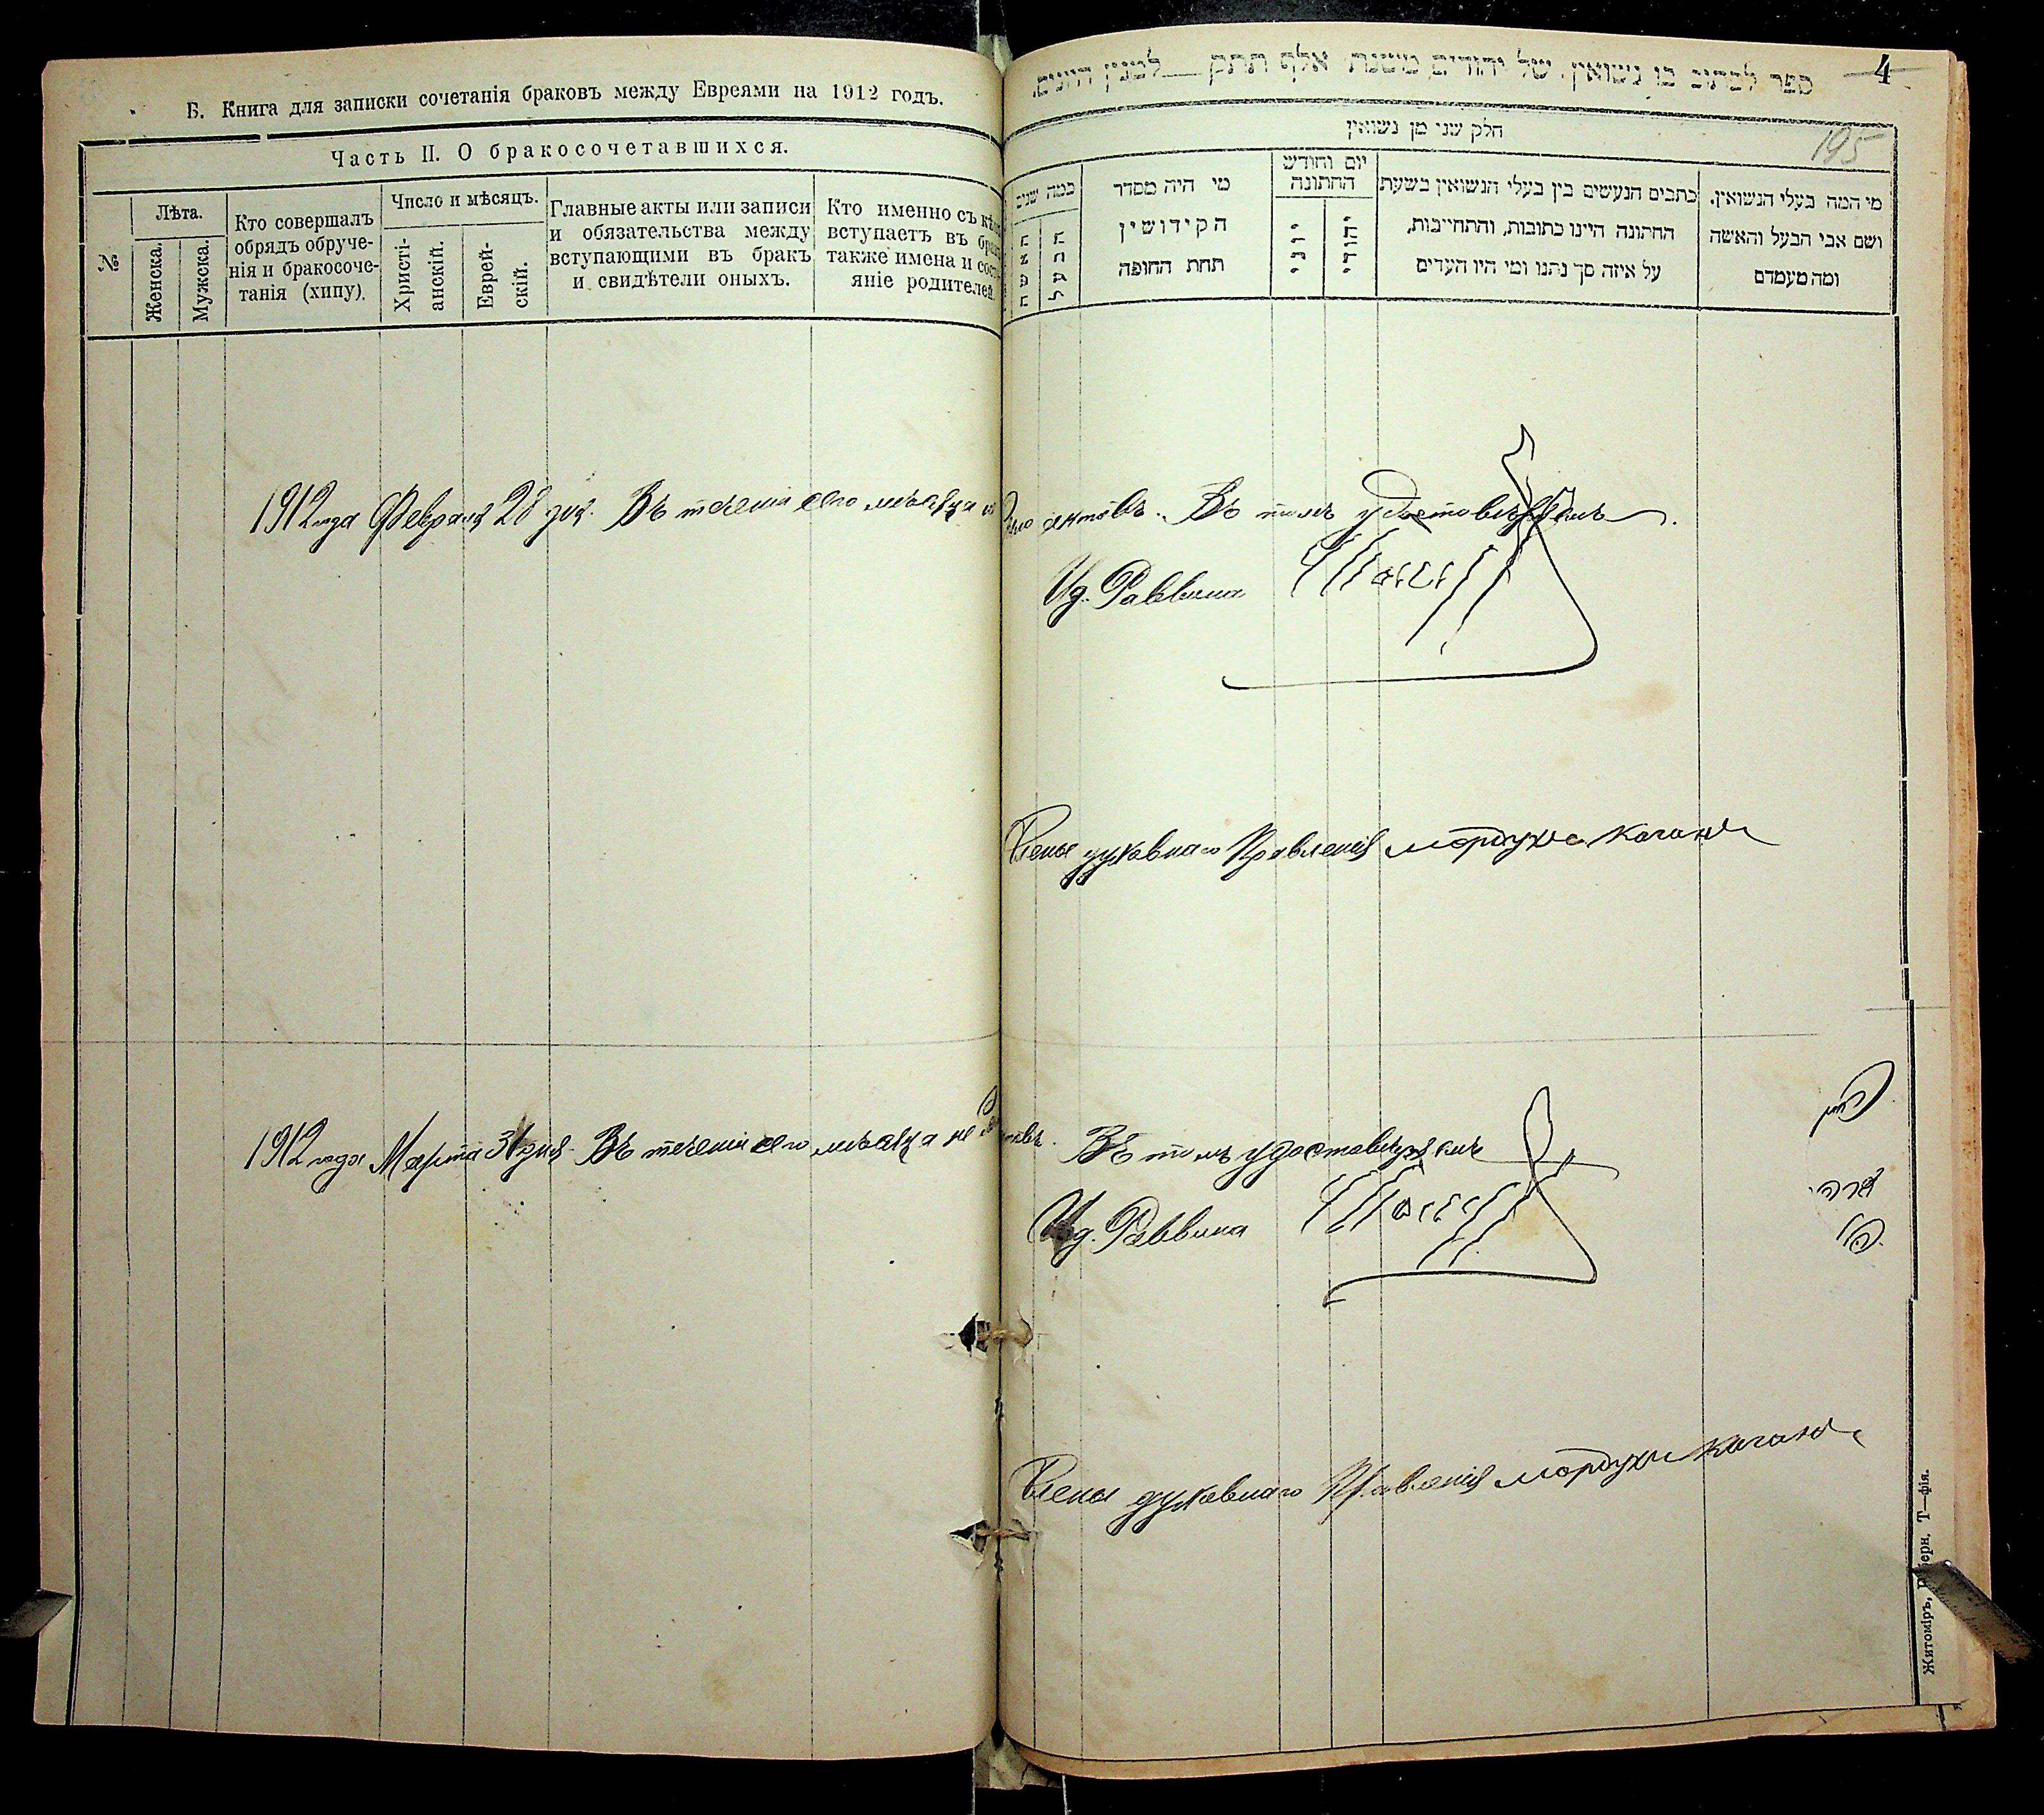 Б. Книга для записки сочетанія браковъ между Евреями на 1912 годъ.
Часть II. О бракосочетавшихся.
№
Лѣта.
Женска.
Мужска.
Кто совершалъ
обрядъ обруче-
нія и бракосоче-
танія (хипу).
Число и мѣсяцъ.
Христі-
анскій.
Еврей-
скій.
Главные акты или записи
и обязательства между
вступающими въ бракъ
и свидѣтели оныхъ.
Кто именно съ кѣмъ
вступаетъ въ бракъ
также имена и сост
яніе родителей.
4
195
ספר לכתוב בו נשואין של יהודים משנת אלף תתק למנין היונים.
חלק שני מן נשואין
כמה שנים
האשה
הבעל
מי היה מסדר
הקידושין
תחת החופה
יום וחודש
החתונה
יוני
יהודי
כתבים הנעשים בין בעלי הנשואין בשעת
החתונה היינו כתובות, והתחייבות,
על איזה סך נתנו ומי היו העדים
מי המה בעלי הנשואין.
ושם אבי הבעל והאשה
ומה מעמדם
1912 года Февраля 28 дня. Въ теченіи сего мѣсяца не было актовъ. Въ томъ удостовѣряемъ.
Ид. Раввина
Члены духовнаго Правленія Мордухъ Каганъ
1912 года Марта 31 дня. Въ теченіи сего мѣсяца не Въ томъ удостовѣряемъ
Ид. Раввина
Члены духовнаго Правленія Мордухъ Каганъ
Житоміръ, Губерн. Т—фія.